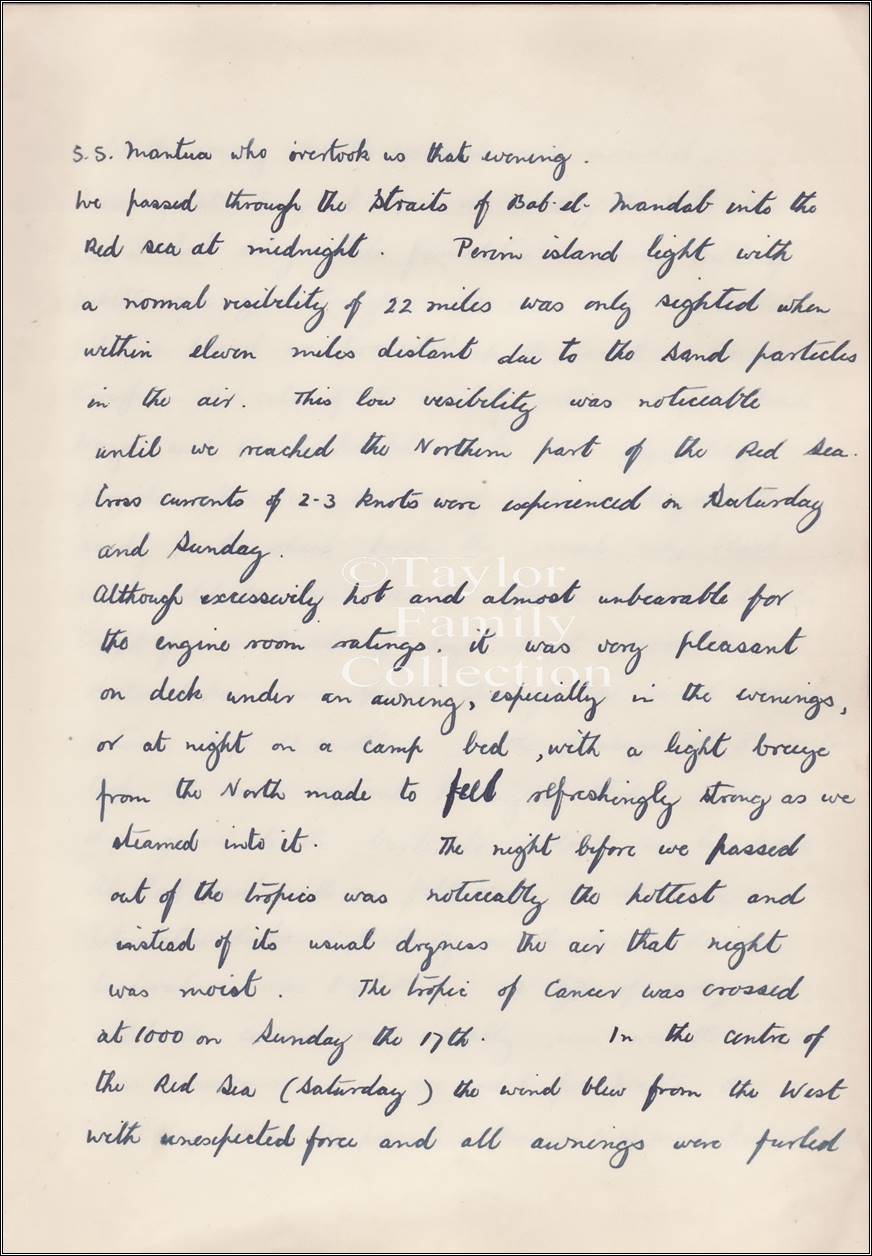 S.S. Mantua who overtook us that evening.
We passed through the Straits of Bab-el-Mandab into the
Red sea at midnight. Perim island light with
a normal visibility of 22 miles was only sighted when
within eleven miles distant due to the sand particles
in the air. This low visibility was noticeable
until we reached the Northern part of the Red Sea.
Cross currents of 2-3 knots were experienced on Saturday
and Sunday.
©Taylor
Although excessively hot and almost unbearable for
Family
the engine room ratings. it was very pleasant
Collection
on deck under an awning, especially in the evenings,
or at night on a camp bed, with a light breeze
from the North made to feel refreshingly strong as we
steamed into it. The night before we passed
out of the tropics was noticeably the hottest and
instead of its usual dryness the air that night
was moist. The tropic of Cancer was crossed
at 1000 on Sunday the 17th. In the centre of
the Red Sea (Saturday) the wind blew from the West
with unexpected force and all awnings were furled